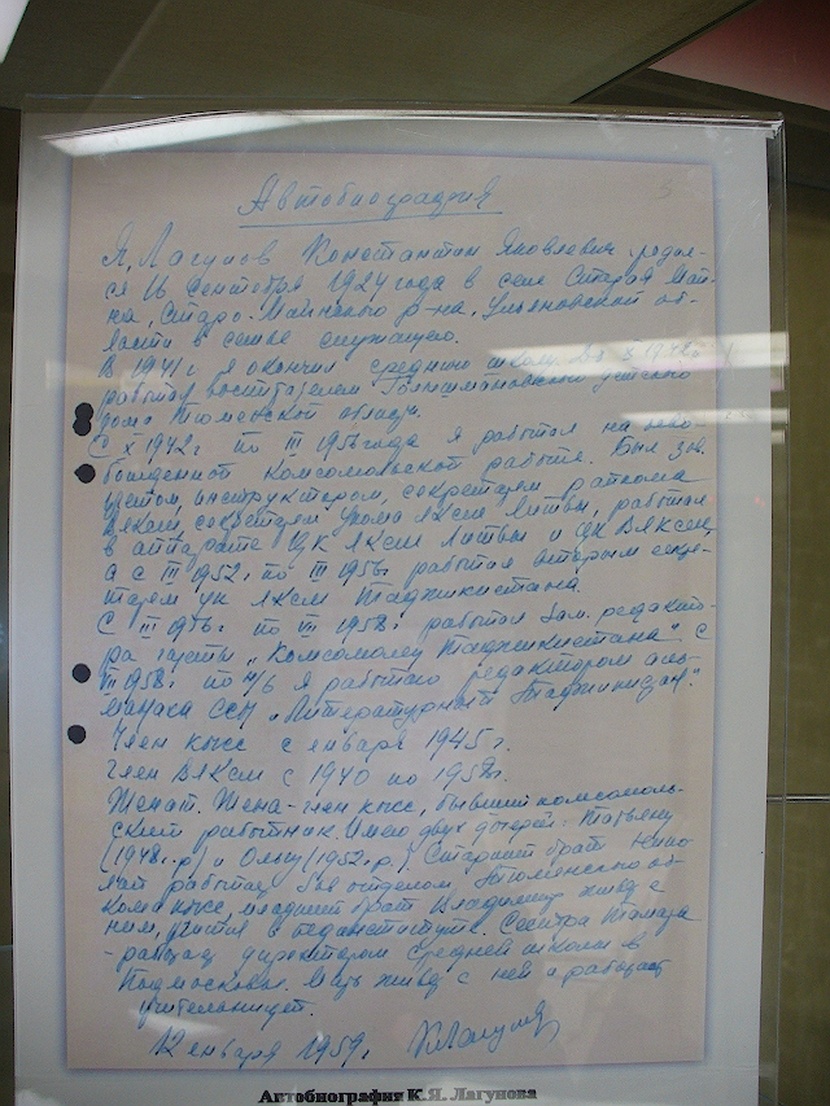 Автобиография
Я, Лагунов Константин Яковлевич родил-
ся 16 сентября 1924 года в селе Старая Май-
на, Старо-Майнского р-на, Ульяновской об-
ласти в семье служащего.
В 1941 г. я окончил среднюю школу. До X 1942 г.
работал воспитателем Голышмановского детского
дома Тюменской области.
С X 1942 г. по III 1956 года я работал на осво-
божденной комсомольской работе. Был зав.
учетом, инструктором, секретарем райкома
ВЛКСМ, секретарем Укома ЛКСМ Литвы, работал
в аппарате ЦК ЛКСМ Литвы и ЦК ВЛКСМ,
а с III 1952 г. по III 1956 г. работал вторым секре-
тарем ЦК ЛКСМ Таджикистана.
С III 1956 г. по VII 1958 г. работал зам. редакто-
ра газеты „Комсомолец Таджикистана" с
VII 1958 г. по н/в я работаю редактором аль-
манаха ССП „Литературный Таджикистан".
Член КПСС с января 1945 г.
Член ВЛКСМ с 1940 по 1958 г.
Женат. Жена - член КПСС, бывший комсомоль-
ский работник. Имею двух дочерей: Татьяну
(1948 г.р.) и Ольгу (1952 г.р.). Старший брат
работает зав. отделом Тюменского об-
кома КПСС, младший брат Владимир живет с
ним, учится в пединституте. Сестра Тамара
- работает директором средней школы в
Подмосковье. Мать живет с ней и работает
учительницей.
12 января 1959 г. КЛагунов
Автобиография К.Я. Лагунова